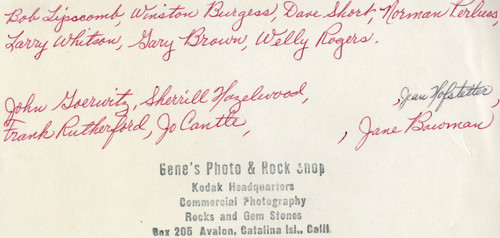 Bob Lipscomb, Winston Burgess, Dave Short, Norman Perluss,
Larry Whitson, Gary Brown, Welly Rogers.
John Goerwitz, Sherrill Hazelwood, , Jean Hofstetter
Frank Rutherford, Jo Cantle, , Jane Bowman
Gene's Photo & Rock Shop
Kodak Headquarters
Commercial Photography
Rocks and Gem Stones
Box 205 Avalon, Catalina Isl., Calif.